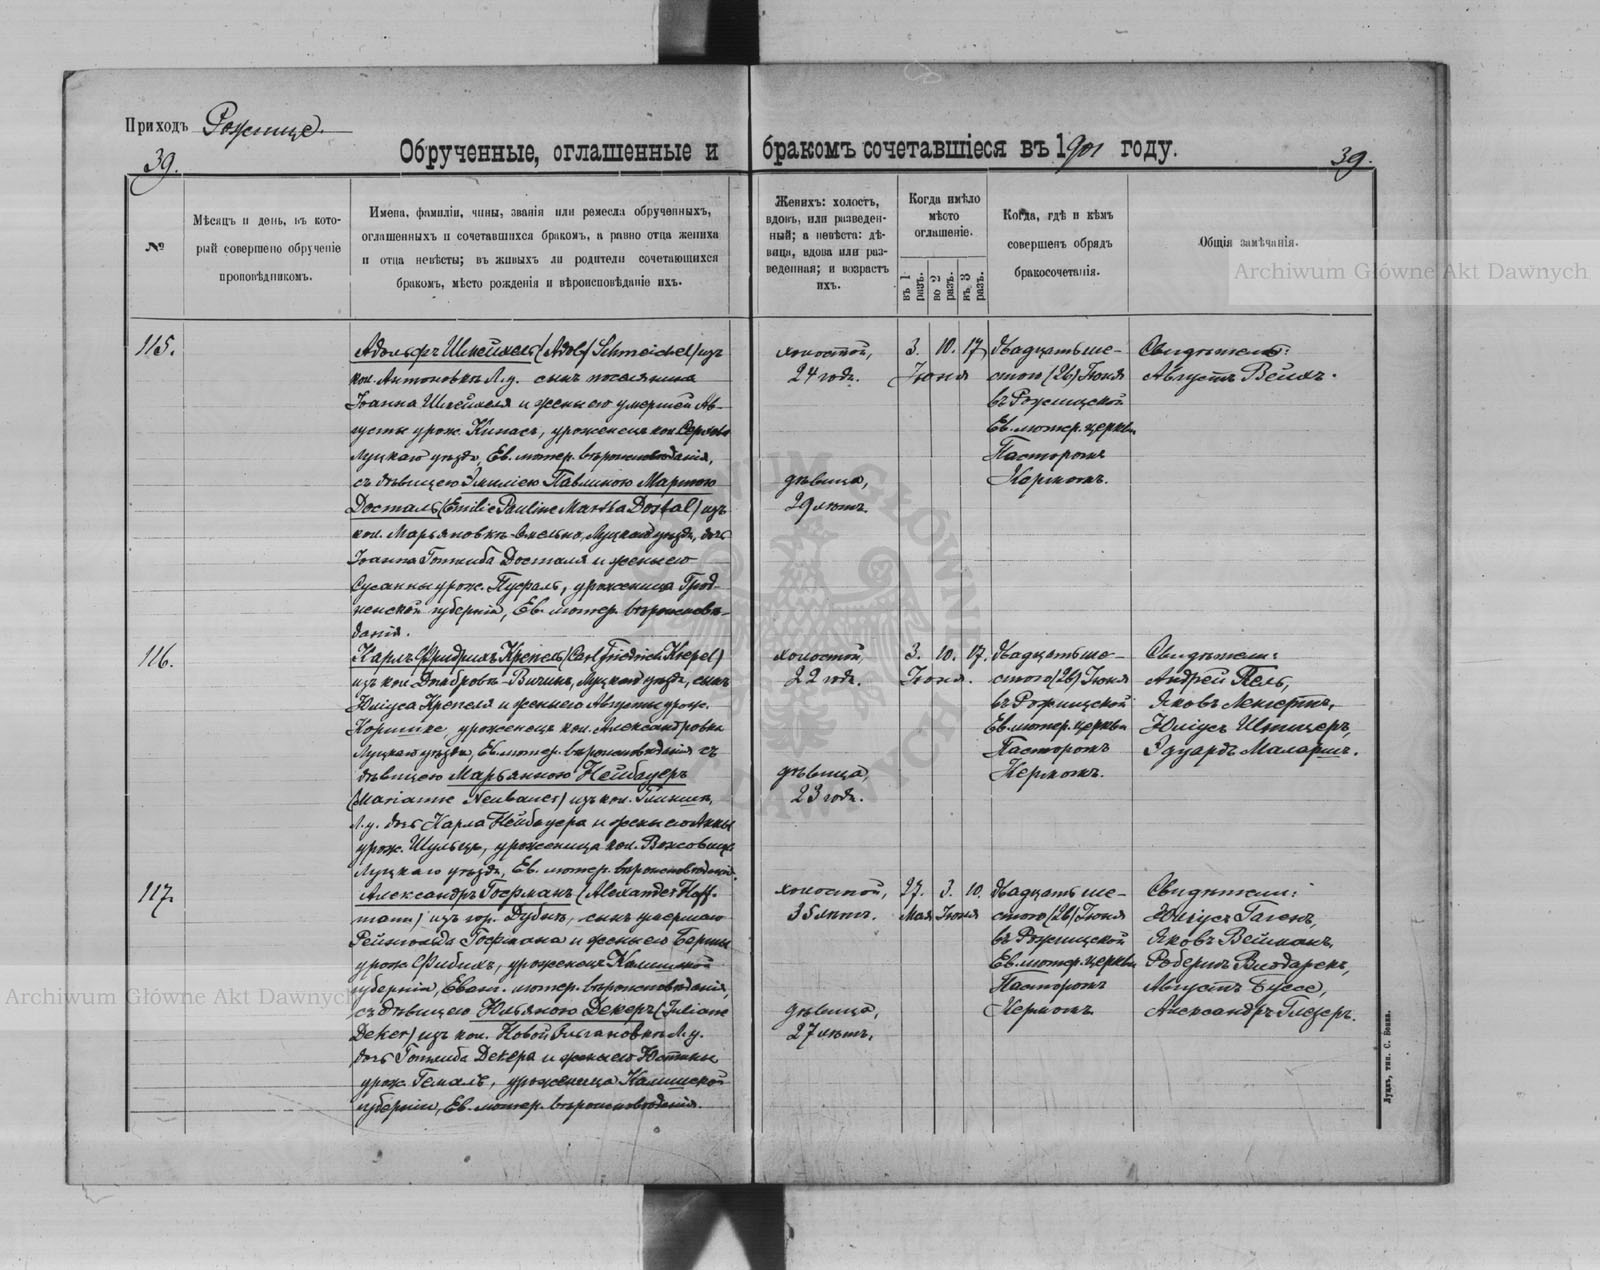 Приходъ Рожище.
39.
Обрученные, оглашенные и бракомъ сочетавшіеся въ 1901 году.
39.
№
Мѣсяцъ и день, въ кото-
рый совершено обрученіе
проповѣдникомъ.
Имена, фамиліи, чины, званія или ремесла обрученныхъ,
оглашенныхъ и сочетавшихся бракомъ, а равно отца жениха
и отца невѣсты; въ живыхъ ли родители сочетающихся
бракомъ, мѣсто рожденія и вѣроисповѣданіе ихъ.
Женихъ: холостъ,
вдовъ, или разведен-
ный; а невѣста: дѣ-
вица, вдова или раз-
веденная; и возрастъ
ихъ.
Когда имѣло
мѣсто
оглашеніе.
въ 1
разъ.
во 2
разъ.
въ 3
разъ.
Когда, гдѣ и кѣмъ
совершенъ обрядъ
бракосочетанія.
Общія замѣчанія.
Archiwum Główne Akt Dawnych
115.
Адольфъ Шмейхель (Adolf Schmeichel) изъ
кол. Антоновка Л.у. сынъ поселянина
Іоанна Шмейхеля и жены его умершей Ав-
густы урож. Кинасъ, уроженецъ кол.
Луцкаго уѣзда, Ев. лютер. вѣроисповѣданія,
съ дѣвицею Эмиліею Павлиною Мартою
Досталь (Emilie Pauline Martha Dostal) изъ
кол. Марьяновка Луцкаго уѣзда, дочь
Іоанна Готлиба Досталя и жены его
Сусанны урож. уроженица Грод-
ненской губерніи, Ев. лютер. вѣроисповѣ-
данія.
холостой,
24 годъ.
дѣвица,
29 лѣтъ.
3. 10. 17
Іюня
Двадцать ше-
стого (26) Іюня
въ Рожищской
Ев. лютер. церкви
Пасторомъ
Керномъ.
Свидѣтель:
Августъ Вейхъ.
116.
Карлъ Фридрихъ Крепель (Carl Friedrich Krepel)
изъ кол. Луцкаго уѣзда, сынъ
Юліуса Крепеля и жены его Августы урож.
уроженецъ кол. Александровка
Луцкаго уѣзда, Ев. лютер. вѣроисповѣданія съ
дѣвицею Марьянною Нейбауеръ
(Marianne Neubauer) изъ кол.
Л.у. дочь Карла Нейбауера и жены его Анны
урож. Шульцъ, уроженица кол.
Луцкаго уѣзда, Ев. лютер. вѣроисповѣданія.
холостой,
22 годъ.
дѣвица,
23 годъ.
3. 10. 17.
Іюня.
Двадцать ше-
стого (26) Іюня
въ Рожищской
Ев. лютер. церкви
Пасторомъ
Керномъ.
Свидѣтели:
Андрей Пель,
Яковъ
Юліусъ
Эдуардъ
117.
Александръ Гофманъ (Alexander Hoff-
mann) изъ гор. Дубнъ, сынъ умершаго
Рейнгольда Гофмана и жены его Берты
урож. Фибихъ, уроженецъ Калишской
губерніи, Еван. лютер. вѣроисповѣданія,
съ дѣвицею Юльяною Декеръ (Juliane
Deker) изъ кол. Новой Л.у.
дочь Готлиба Декера и жены его Юстины
урож. уроженица Калишской
губерніи, Ев. лютер. вѣроисповѣданія.
холостой,
35 лѣтъ.
дѣвица,
27 лѣтъ.
27. 3. 10.
Мая Іюня
Двадцать ше-
стого (26) Іюня
въ Рожищской
Ев. лютер. церкви
Пасторомъ
Керномъ
Свидѣтели:
Юліусъ Гагенъ,
Яковъ Вейманъ,
Робертъ
Августъ Буссе,
Александръ Глезеръ.
Archiwum Główne Akt Dawnych
Луцкъ, тип. С. Бонка.